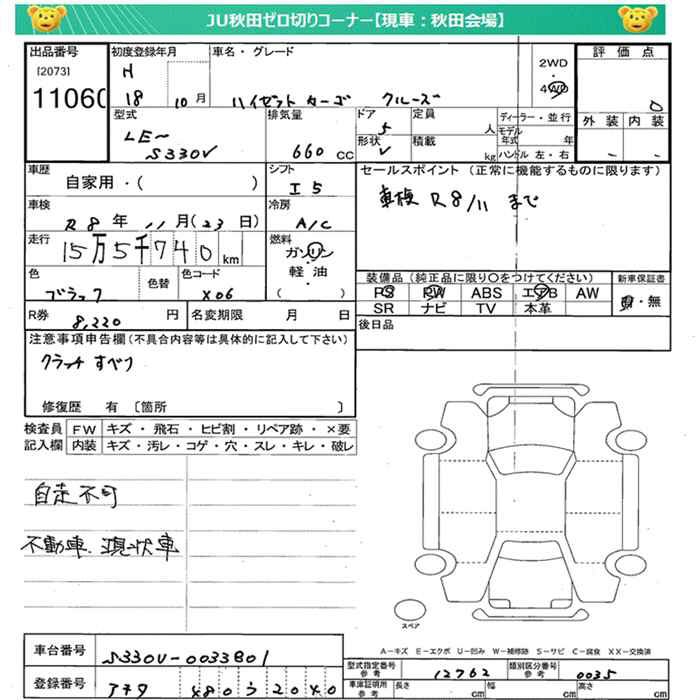 JU秋田ゼロ切りコーナー【現車：秋田会場】
出品番号
[2073]
1106
初度登録年月
H
18 10 月
車名・グレード
ハイゼット カーゴ クルーズ
2WD
4WD
評価点
0
外装 内装
- -
型式
LE-
S330V
排気量
660 CC
ドア
5
形状
V
定員
人
積載
kg
ディーラー・並行
モデル年式 年
ハンドル 左・右
車歴
自家用・( )
シフト
I5
セールスポイント（正常に機能するものに限ります）
車検 R8/11 まで
車検
R8 年 11 月(23 日)
冷房
A/C
走行
15万5千740 km
燃料
ガソリン
・
軽油
( )
色
ブラック
色替
色コード
X06
装備品（純正品に限り○をつけてください）
PS PW ABS エアB AW
SR ナビ TV 本革
新車保証書
有・無
R券 8,220 円
名変期限 月 日
後日品
注意事項申告欄（不具合内容等は具体的に記入して下さい）
クラッチ すべり
修復歴 有〔箇所 〕
検査員記入欄
FW キズ・飛石・ヒビ割・リペア跡・×要
内装 キズ・汚レ・コゲ・穴・スレ・キレ・破レ
自走不可
不動車、現状車
スペア
A－キズ E－エクボ U－凹み W－補修跡 S－サビ C－腐食 XX－交換済
車台番号 S330V-0033801
登録番号 480 う 2040
型式指定番号 参考 12762
類別区分番号 参考 0035
車庫証明用 参考 長さ cm 幅 cm 高さ cm